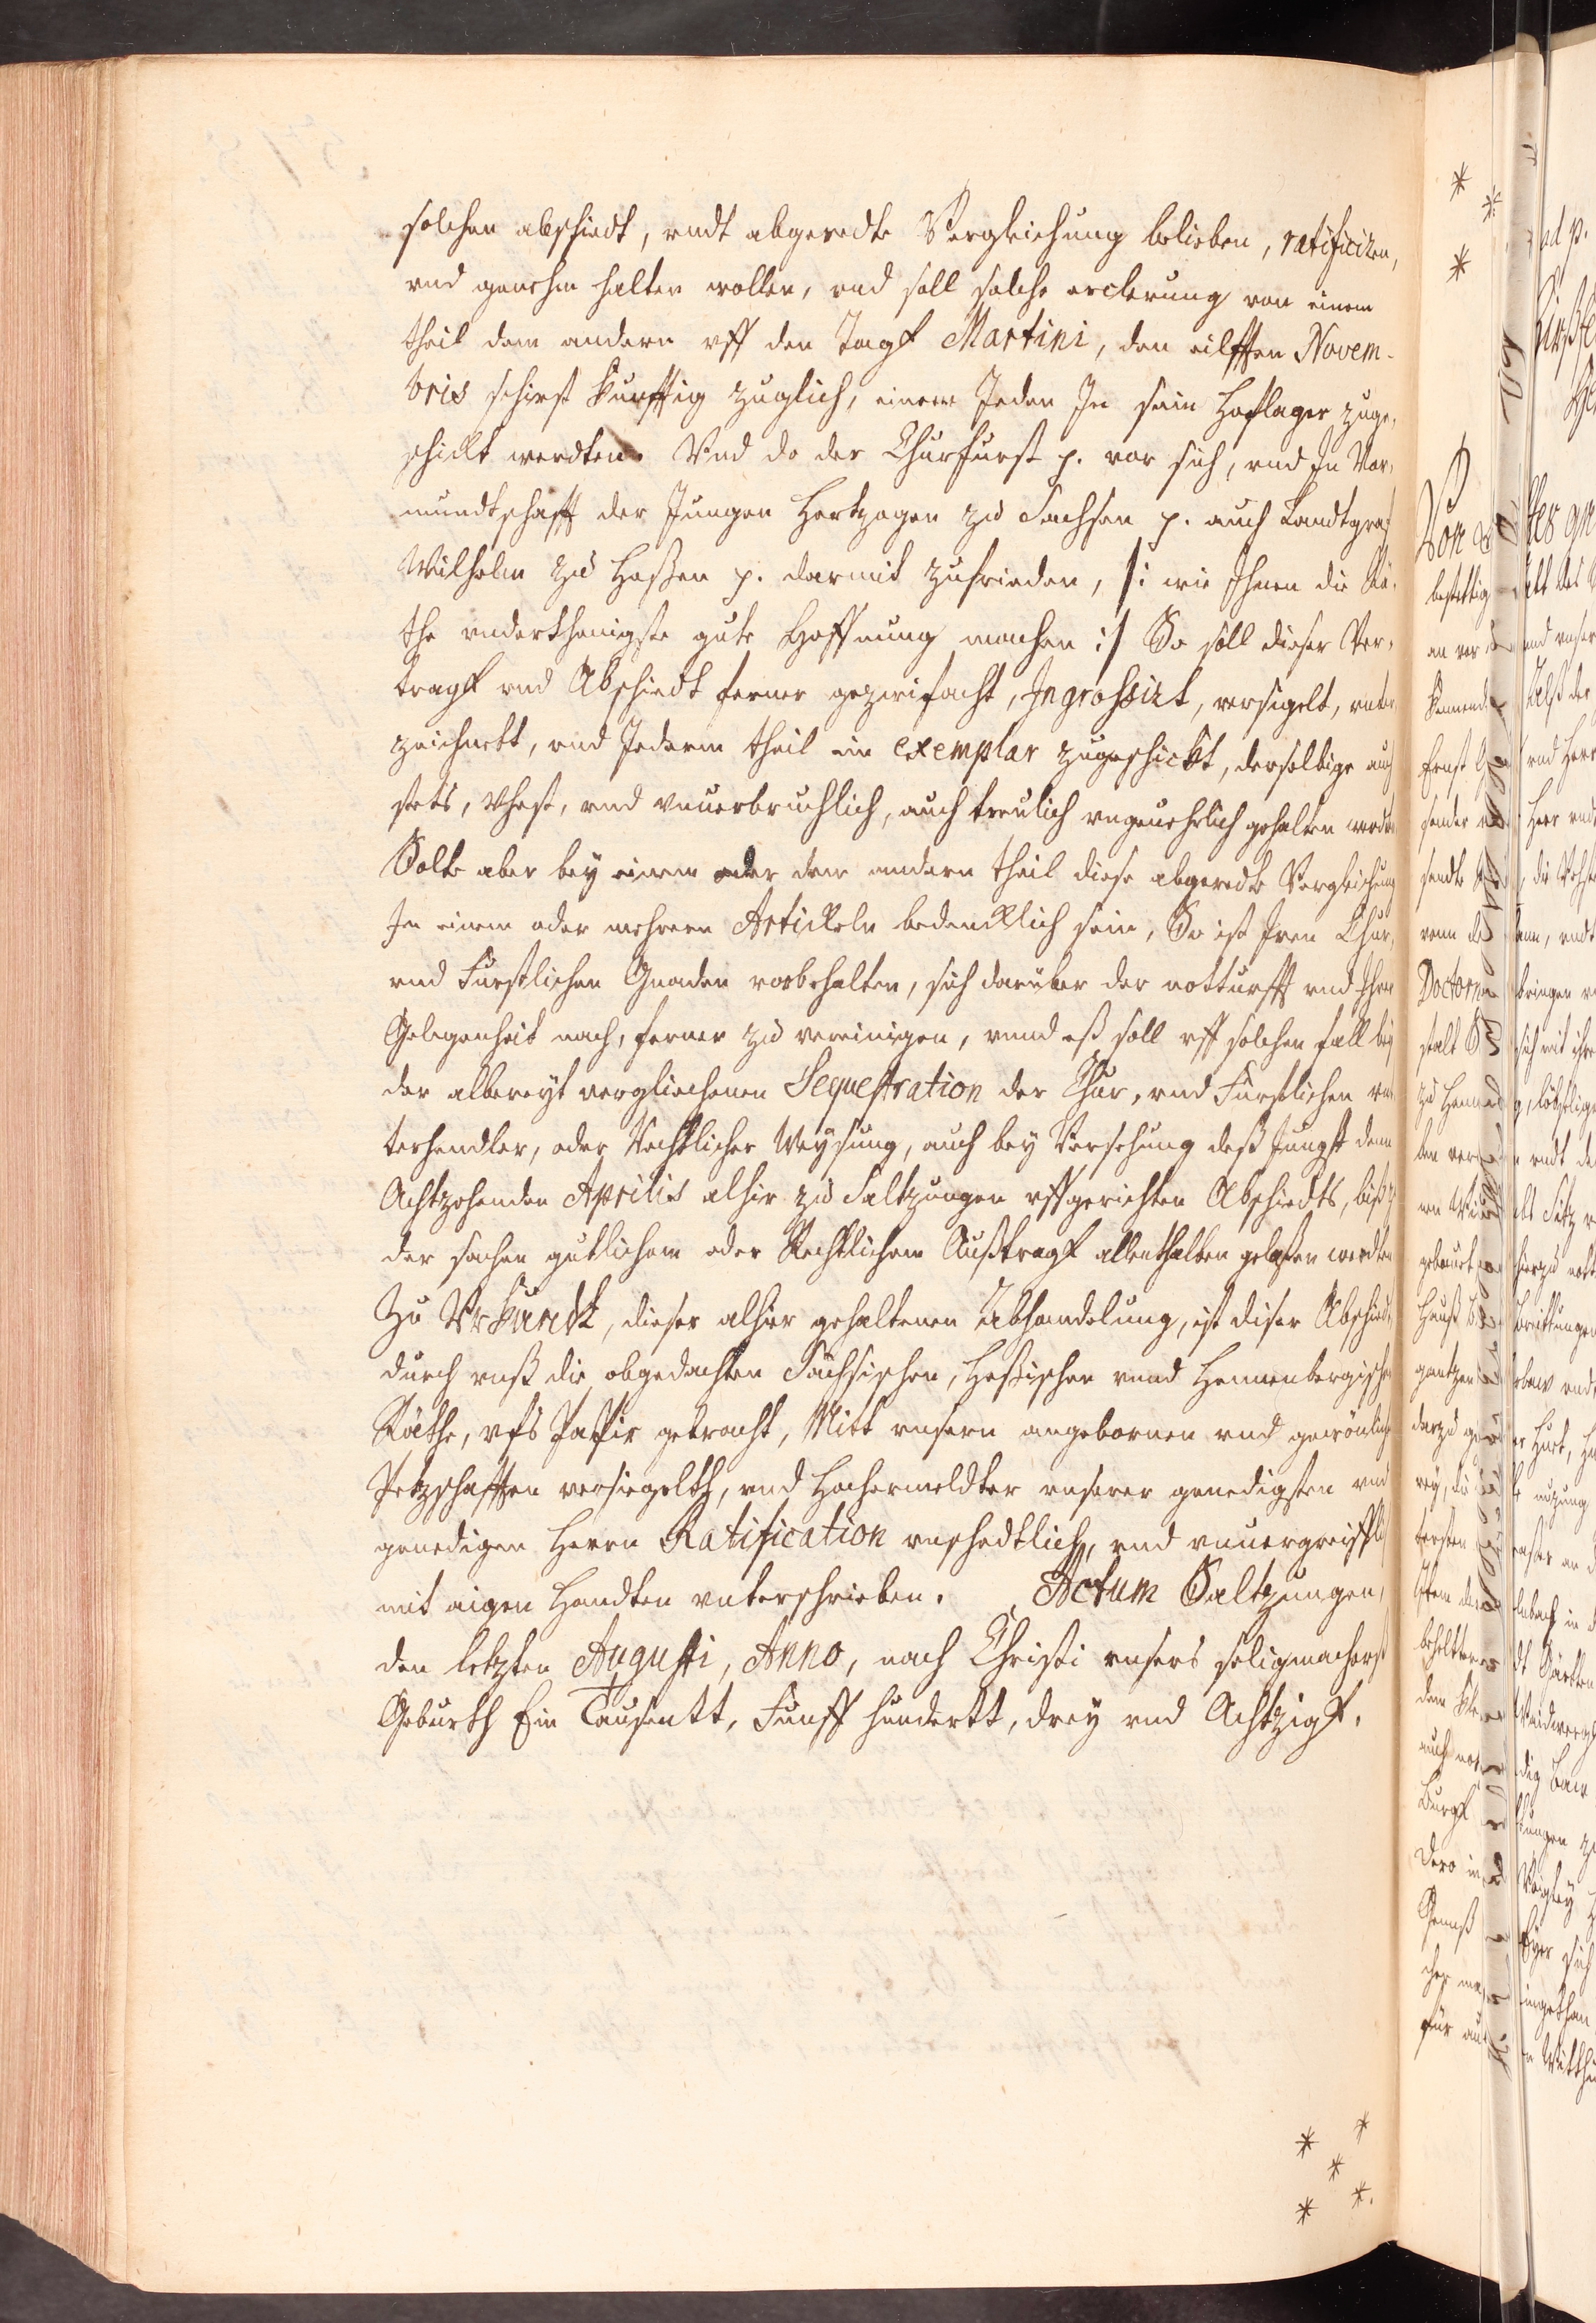 solchen abschiedt, vndt abgeredte Vergleichung belieben, ratificiren,
vnd genehm halten wollen, vnd soll solche erclerung von einem
theil dem andern vff den Tagk Martini, den eilfften Novem-
bris schirst kunfftig zuglich, einem Jeden In sein Hoflager zuge-
schickt werdten. Vnd do der Churfurst p. vor sich, vnd In Vor-
mundtschafft der Jungen Hertzogen zu Sachsen p. auch Landtgraf
Wilhelm zu Heßen p. darmit zufrieden, /: wie Ihnen die Rä-
the vnderthenigste gute Hoffnung machen :/ So soll dieser Ver-
tragk vnd Abschiedt ferner gezwifacht, Ingrossirt, versigelt, unter
zeichnett, vnd Jederm theil ein exemplar zugeschickt, derselbige auch
stets, vhest, vnd vnuerbruchlich, auch treulich vngeuehrlich gehalten werden
Solte aber bey einem oder dem andern theil diese abgeredte Vergleichung
In einem oder mehrern Artickeln bedencklich sein, So ist Iren Chur-
vnd Furstlichen Gnaden vorbehalten, sich darüber der notturfft vnd Ihrer
Gelegenheit nach, ferner zu vereinigen, vnnd eß soll vff solchen fall bey
der albereyt verglichenen Sequestration der Chur, vnd Fürstlichen vn
terhendler, oder Rechtlicher Weysung, auch bey Versehung deß Jungst denn
Achtzehenden Aprilis alhir zu Saltzungen vffgerichten Abschiedts, biß zu
der sachen gutlichem oder Rechtlichem Außtragk allenthalben gelaßen werdten
Zu Vrkundt, dieser alhier gehaltenen Abhandelung, ist diser Abschiedt,
durch vnß die obgedachten Sächsischen, Heßischen vnnd Hennenbergischen
Räthe, vfs Papir gebracht, Mitt vnsern angebornen vnd gewönlichen
Petzschafften versiegelth, vnd Hochermeldter vnserer genedigsten vnd
genedigen Herrn Ratification vnschedtlich, vnd vnuergreifflich
mit aigen Handten vnterschrieben. Actum Saltzungen,
den letzten Augusti, Anno, nach Christi vnsers seligmachers
Geburth Ein Tausentt, Funff hundertt, drey vnd Achtzigk.